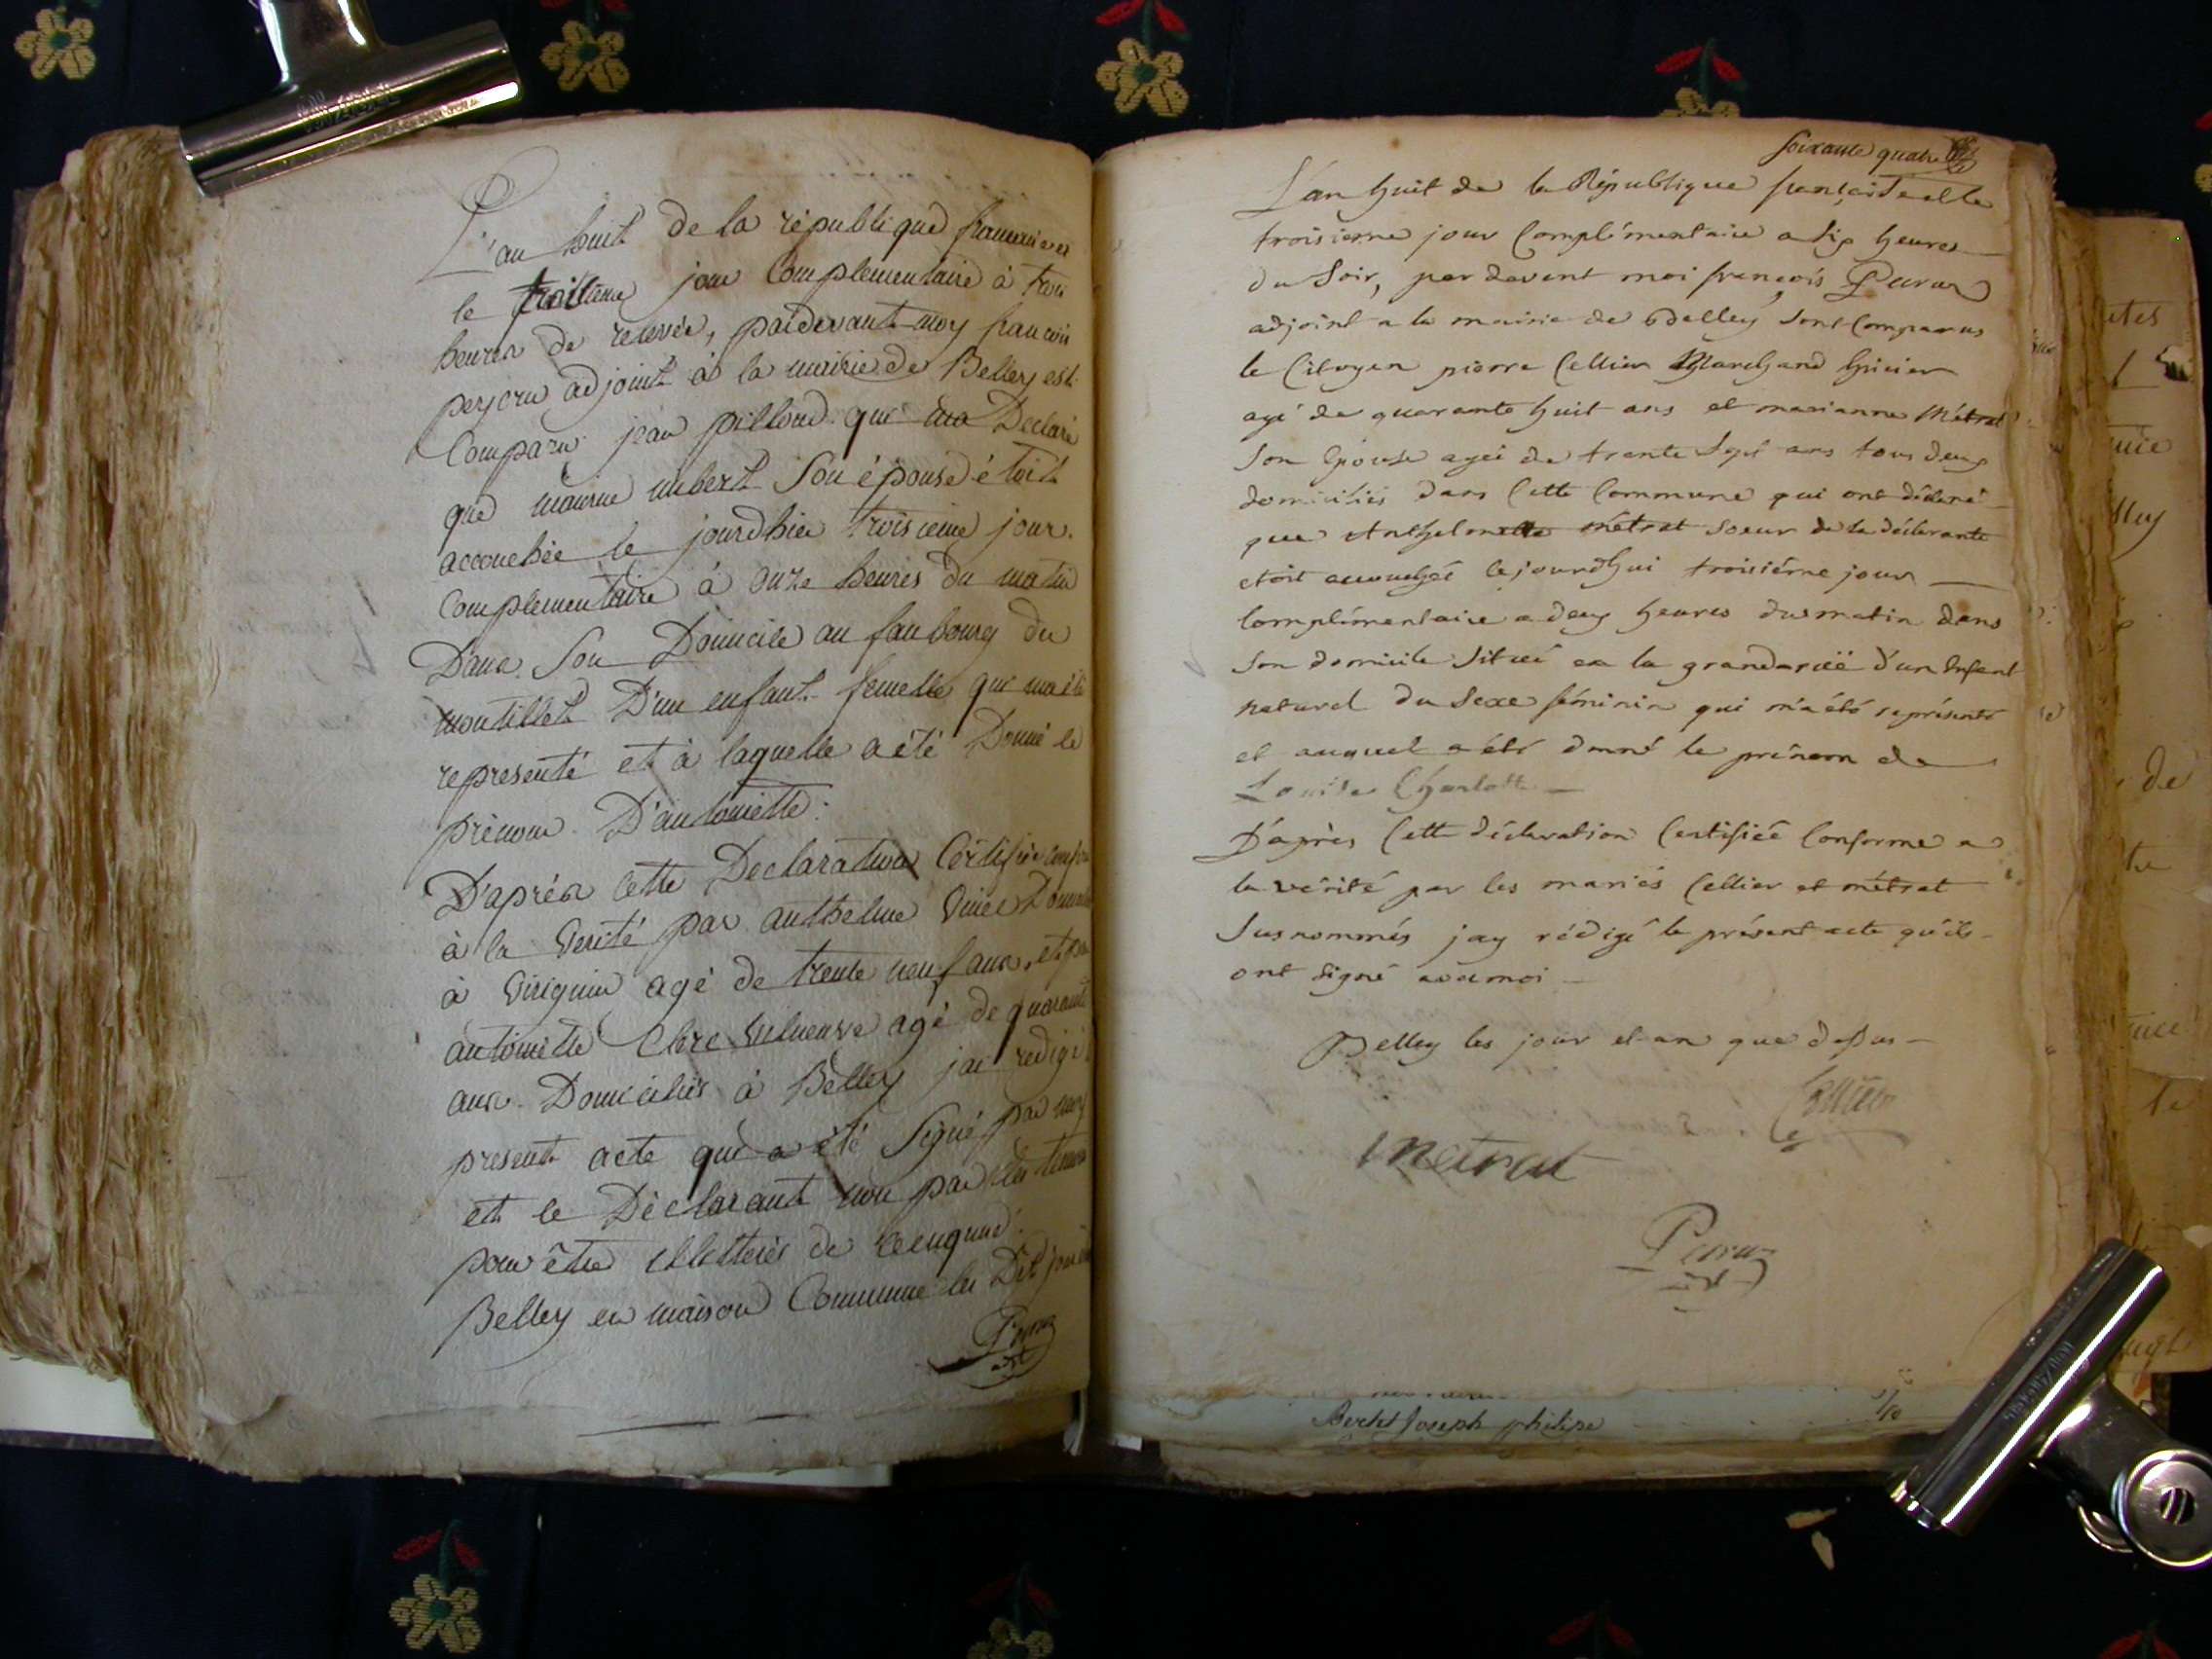 L'an huit de la république francaise et
le troisieme jour Complementaire à trois
heures de relevée, pardevant moy francois
peycru adjoint à la mairie de Belley est
Comparu jean pilloud qui ma Declaré
que maurise imbert Son épouse étoit
accouchée le jourdhier troisieme jour
Complementaire à onze heures du matin
Dans Son Domicile au faubourg du
montillet D'un enfant femelle qui ma été
representé et à laquelle a été Donné le
prénom D'antoinette :
D'aprés cette Declaration Certifiée
à la Verité par anthelme
à Virignin agé de trente neuf ans, et
antoinette agé de quarante
ans Domiciliés à Belley jai redigé
present acte qui a été Signé par moy
et le Déclarant non par les temoins
pour être illetterés de ce enquis.
Belley en maison Commune les Dit jour
soixante quatre
L'an huit de la République française et le
troisieme jour Complémentaire a six heures
du Soir, par devant moi françois
adjoint a la mairie de Belley, Sont Comparus
le Citoyen pierre Cellier Marchand Epicier
agé de quarante huit ans et marianne Métrat
Son Epouse agée de trente Sept ans tous deux
domiciliés dans Cette Commune qui ont déclaré
que Anthelmette métrat Soeur de la déclarante
etoit accouchée cejourdhui troisiéme jour
Complémentaire a deux heures du matin dans
Son domicile Situé en la grande rüe d'un Enfant
naturel du Sexe féminin qui m'a été représenté
et auquel a été donné le prénom de
Louise Charlotte
D'après Cette déclaration Certifiée Conforme a
la vérité par les mariés Cellier et métrat
Susnommés jay rédigé le présent acte qu'ils
ont Signé avec moi
Belley les jour et an que dessus
Cellier
Metrat
Berthet Joseph philipe